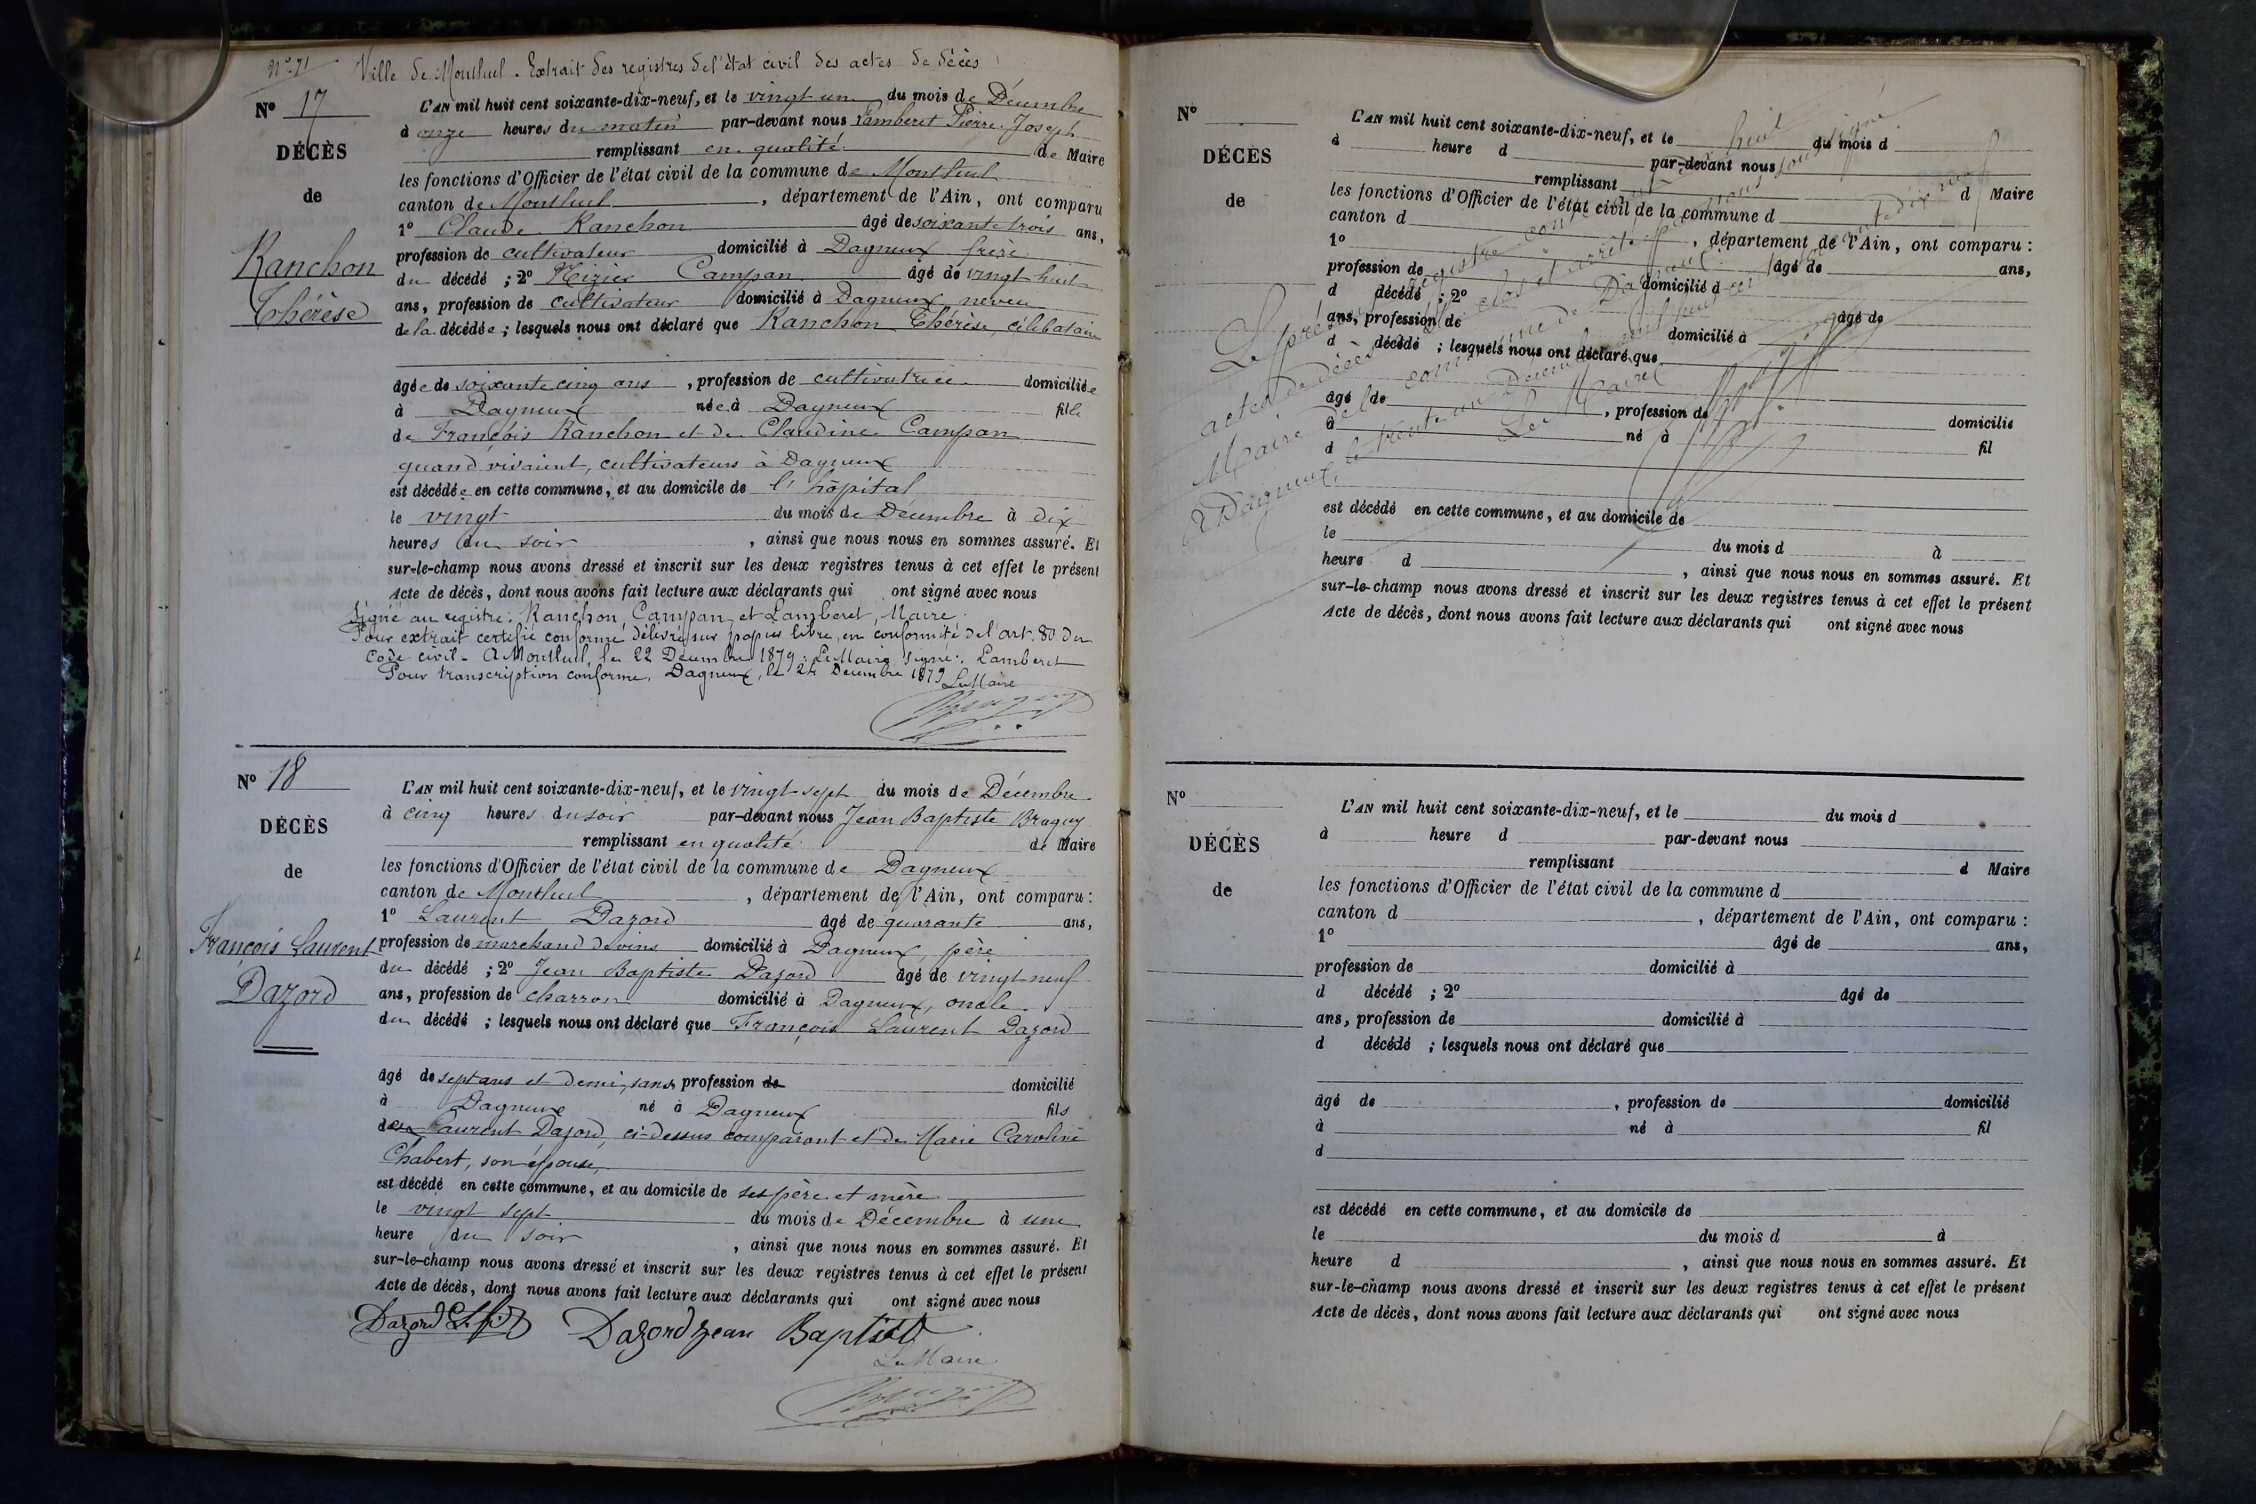 N° 71 Ville de Montluel. Extrait des registres de l'état civil des actes de décès
N° 17
DÉCÈS
de
Ranchon
Thérèse
L'AN mil huit cent soixante-dix-neuf, et le vingt un du mois de Décembre
à onze heures du matin par-devant nous Lamberet Pierre Joseph
remplissant en qualité de Maire
les fonctions d'Officier de l'état civil de la commune de Montluel
canton de Montluel, département de l'Ain, ont comparu
1° Claude Ranchon âgé de soixante trois ans,
profession de cultivateur domicilié à Dagneux frère
du décédé ; 2° Nizier Campan âgé de vingt huit
ans, profession de cultivateur domicilié à Dagneux neveu
de la décédée ; lesquels nous ont déclaré que Ranchon Thérèse, célibataire
âgée de soixante cinq ans, profession de cultivatrice domiciliée
à Dagneux née à Dagneux fille
de François Ranchon et de Claudine Campan
quand vivaient, cultivateurs à Dagneux
est décédée en cette commune, et au domicile de l'hôpital
le vingt du mois de Décembre à dix
heures du soir, ainsi que nous nous en sommes assuré. Et
sur-le-champ nous avons dressé et inscrit sur les deux registres tenus à cet effet le présent
Acte de décès, dont nous avons fait lecture aux déclarants qui ont signé avec nous
Signé au registre : Ranchon, Campan et Lamberet, Maire.
Pour extrait certifié conforme délivré sur papier libre, en conformité de l'art. 80 du
Code civil. A Montluel, le 22 Décembre 1879. Le Maire signé : Lamberet
Pour transcription conforme, Dagneux, le 24 Décembre 1879 Le Maire
N° 18
DÉCÈS
de
François Laurent
Dazord
L'AN mil huit cent soixante-dix-neuf, et le vingt-sept du mois de Décembre
à cinq heures du soir par-devant nous Jean Baptiste Braguy
remplissant en qualité de Maire
les fonctions d'Officier de l'état civil de la commune de Dagneux
canton de Montluel, département de l'Ain, ont comparu :
1° Laurent Dazord âgé de quarante ans,
profession de marchand de vins domicilié à Dagneux, père
du décédé ; 2° Jean Baptiste Dazord âgé de vingt neuf
ans, profession de charron domicilié à Dagneux, oncle
du décédé ; lesquels nous ont déclaré que François Laurent Dazord
âgé de sept ans et demi, sans profession de domicilié
à Dagneux né à Dagneux fils
de Laurent Dazord, ci-dessus comparant et de Marie Caroline
Chabert, son épouse,
est décédé en cette commune, et au domicile de ses père et mère
le vingt sept du mois de Décembre à une
heure du soir, ainsi que nous nous en sommes assuré. Et
sur-le-champ nous avons dressé et inscrit sur les deux registres tenus à cet effet le présent
Acte de décès, dont nous avons fait lecture aux déclarants qui ont signé avec nous
Dazord Dazord Jean Baptiste
Le Maire
N°
DÉCÈS
de
L'AN mil huit cent soixante-dix-neuf, et le du mois d
à heure d par-devant nous
remplissant d Maire
les fonctions d'Officier de l'état civil de la commune d
canton d , département de l'Ain, ont comparu :
1° âgé de ans,
profession de domicilié à
d décédé ; 2° âgé de
ans, profession de domicilié à
d décédé ; lesquels nous ont déclaré que
âgé de , profession de domicilié
à né à fil
d
est décédé en cette commune, et au domicile de
le du mois d à
heure d , ainsi que nous nous en sommes assuré. Et
sur-le-champ nous avons dressé et inscrit sur les deux registres tenus à cet effet le présent
Acte de décès, dont nous avons fait lecture aux déclarants qui ont signé avec nous
Le présent registre
actes de décès clos et arrêté par nous soussigné
Maire de la commune de Dagneux
à Dagneux, le trente un Décembre mil huit cent soixante dix neuf
Le Maire
N°
DÉCÈS
de
L'AN mil huit cent soixante-dix-neuf, et le du mois d
à heure d par-devant nous
remplissant d Maire
les fonctions d'Officier de l'état civil de la commune d
canton d , département de l'Ain, ont comparu :
1° âgé de ans,
profession de domicilié à
d décédé ; 2° âgé de
ans, profession de domicilié à
d décédé ; lesquels nous ont déclaré que
âgé de , profession de domicilié
à né à fil
d
est décédé en cette commune, et au domicile de
le du mois d à
heure d , ainsi que nous nous en sommes assuré. Et
sur-le-champ nous avons dressé et inscrit sur les deux registres tenus à cet effet le présent
Acte de décès, dont nous avons fait lecture aux déclarants qui ont signé avec nous